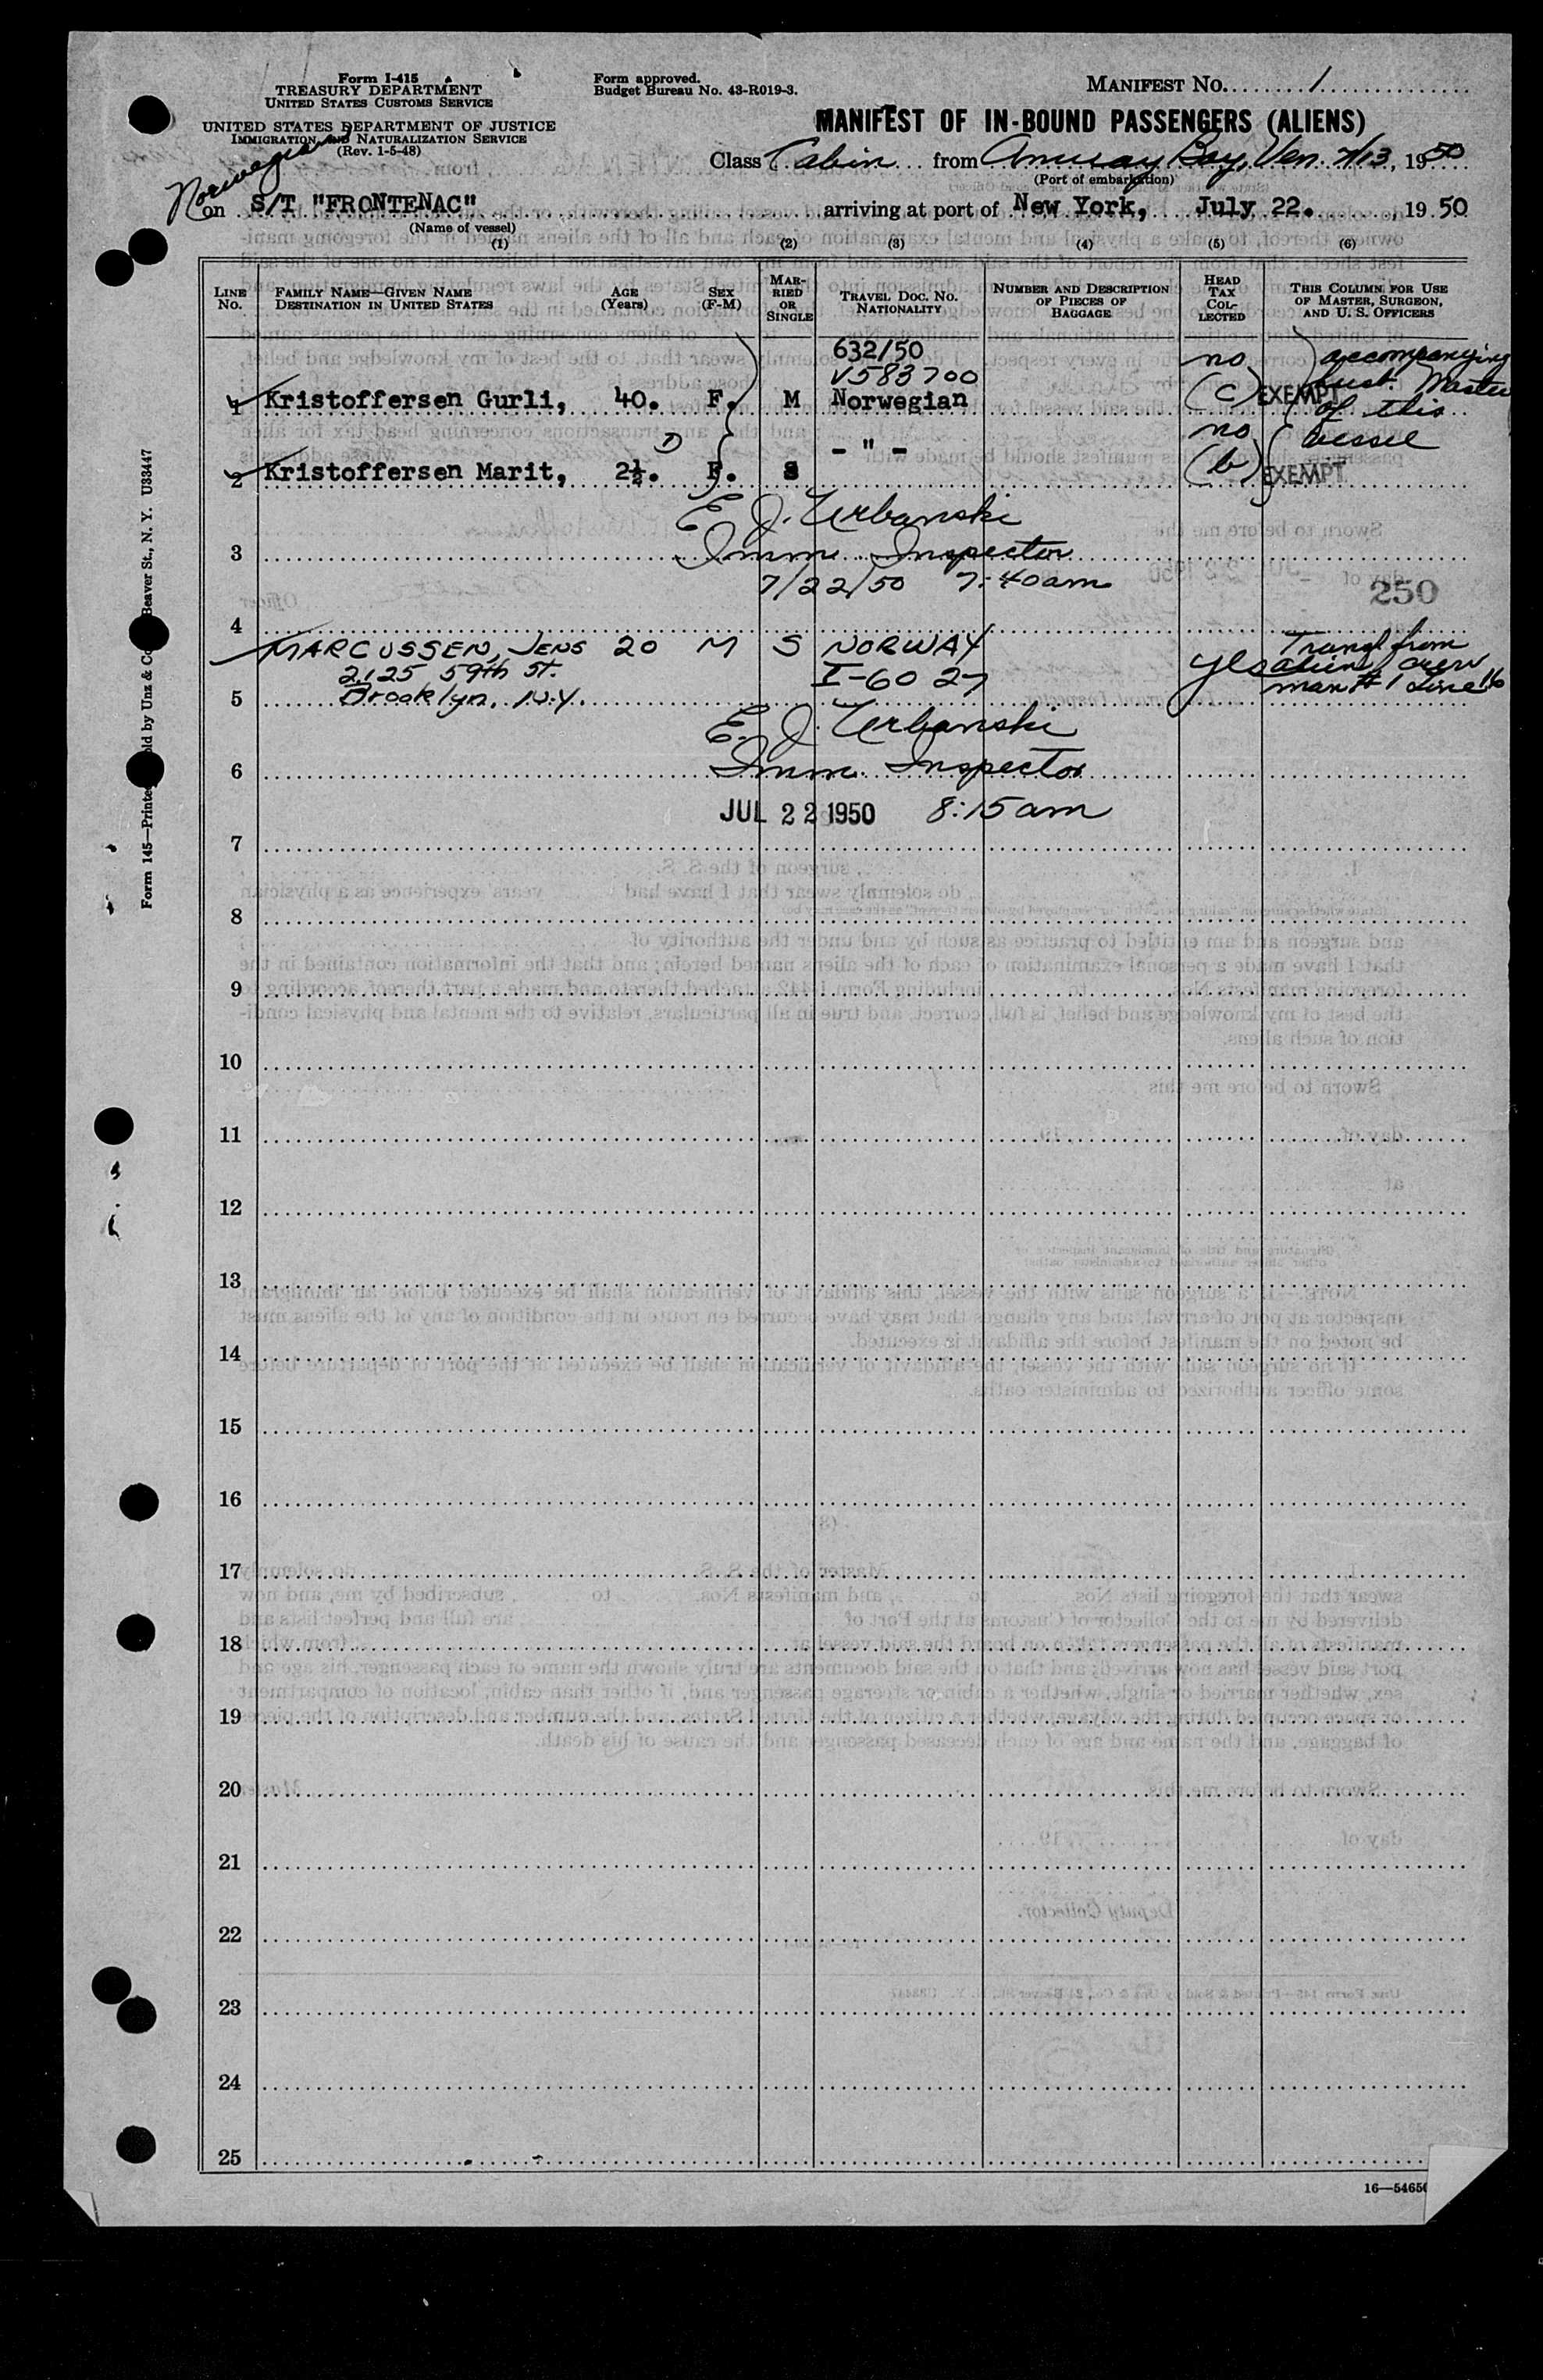 Form I-415
TREASURY DEPARTMENT
UNITED STATES CUSTOMS SERVICE
UNITED STATES DEPARTMENT OF JUSTICE
IMMIGRATION AND NATURALIZATION SERVICE
(Rev. 1-5-48)
Form approved.
Budget Bureau No. 43-R019-3.
MANIFEST No. 1
MANIFEST OF IN-BOUND PASSENGERS (ALIENS)
Class Cabin from Amuay Bay, Ven. 7/13, 1950
(Port of embarkation)
Norwegian
on S/T "FRONTENAC" arriving at port of New York, July 22., 19 50
(Name of vessel)
(1) (2) (3) (4) (5) (6)
LINE No. FAMILY NAME—GIVEN NAME DESTINATION IN UNITED STATES AGE (Years) SEX (F-M) MARRIED OR SINGLE TRAVEL DOC. NO. NATIONALITY NUMBER AND DESCRIPTION OF PIECES OF BAGGAGE HEAD TAX COLLECTED THIS COLUMN FOR USE OF MASTER, SURGEON, AND U. S. OFFICERS
632/50 no accompanying
V583700 husb. Master
1 Kristoffersen Gurli, 40. F. M Norwegian (c) EXEMPT of this
D no vessel
2 Kristoffersen Marit, 2½. F. S - " - (b) EXEMPT
E. J. Urbanski
3 Imm. Inspector
7/22/50 7:40am
250
4
MARCUSSEN, JENS 20 M S NORWAY Transf from
2125 59th St. I-60 27 yes alien crew
5 Brooklyn, N.Y. man #1 Line 16
E. J. Urbanski
6 Imm. Inspector
JUL 22 1950 8:15am
7
8
9
10
11
12
13
14
15
16
17
18
19
20
21
22
23
24
25
16—5465
Form 145—Printed Sold by Unz & Co Beaver St., N. Y. U33447